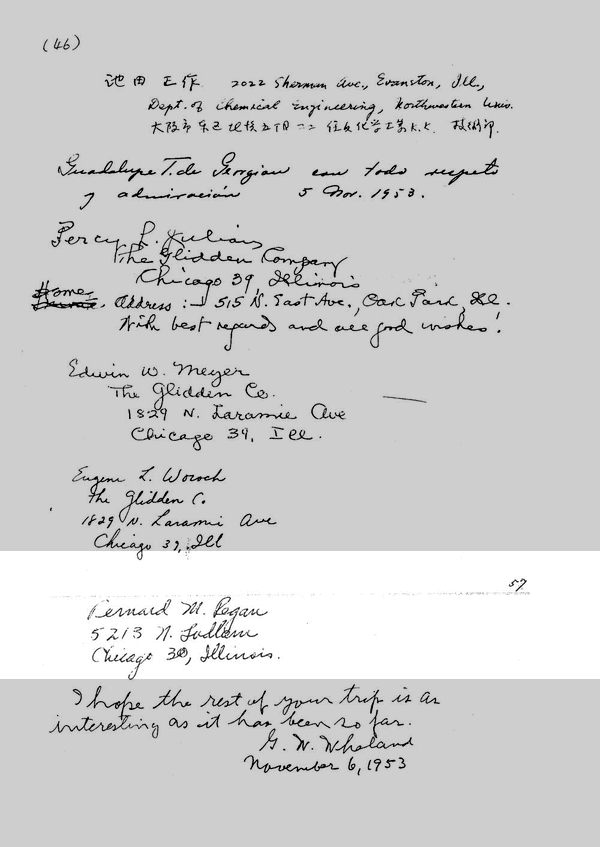 (46)
池田正作 2022 Sherman Ave., Evanston, Ill.,
Dept. of Chemical Engineering, Northwestern Univ.
大阪市 住友化学工業K.K. 技術部
Guadalupe T. de Georgian con todo respeto
y admiración 5 Nov. 1953.
Percy L. Julian
The Glidden Company
Chicago 39, Illinois
Home Address :- 515 N. East Ave., Oak Park, Ill.
With best regards and all good wishes!
Edwin W. Meyer
The Glidden Co.
1829 N. Laramie Ave
Chicago 39, Ill.
Eugene L. Woroch
The Glidden Co.
1829 N. Laramie Ave
Chicago 39, Ill
57
Bernard M. Regan
5213 N. Ludlam
Chicago 30, Illinois.
I hope the rest of your trip is as
interesting as it has been so far.
G. W. Wheland
November 6, 1953